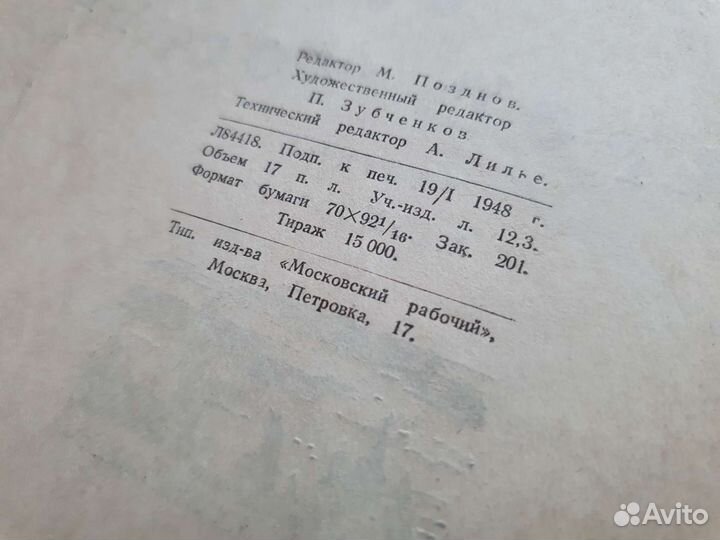 Редактор М. Позднов.
Художественный редактор
П. Зубченков
Технический редактор А. Лилье.
Л84418. Подп. к печ. 19/I 1948 г.
Объем 17 п. л. Уч.-изд. л. 12,3.
Формат бумаги 70×92 1/16. Зак. 201.
Тираж 15 000.
Тип. изд-ва «Московский рабочий»,
Москва, Петровка, 17.
Avito